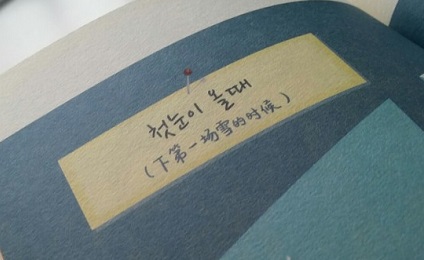 첫눈이 올때
(下第一场雪的时候)